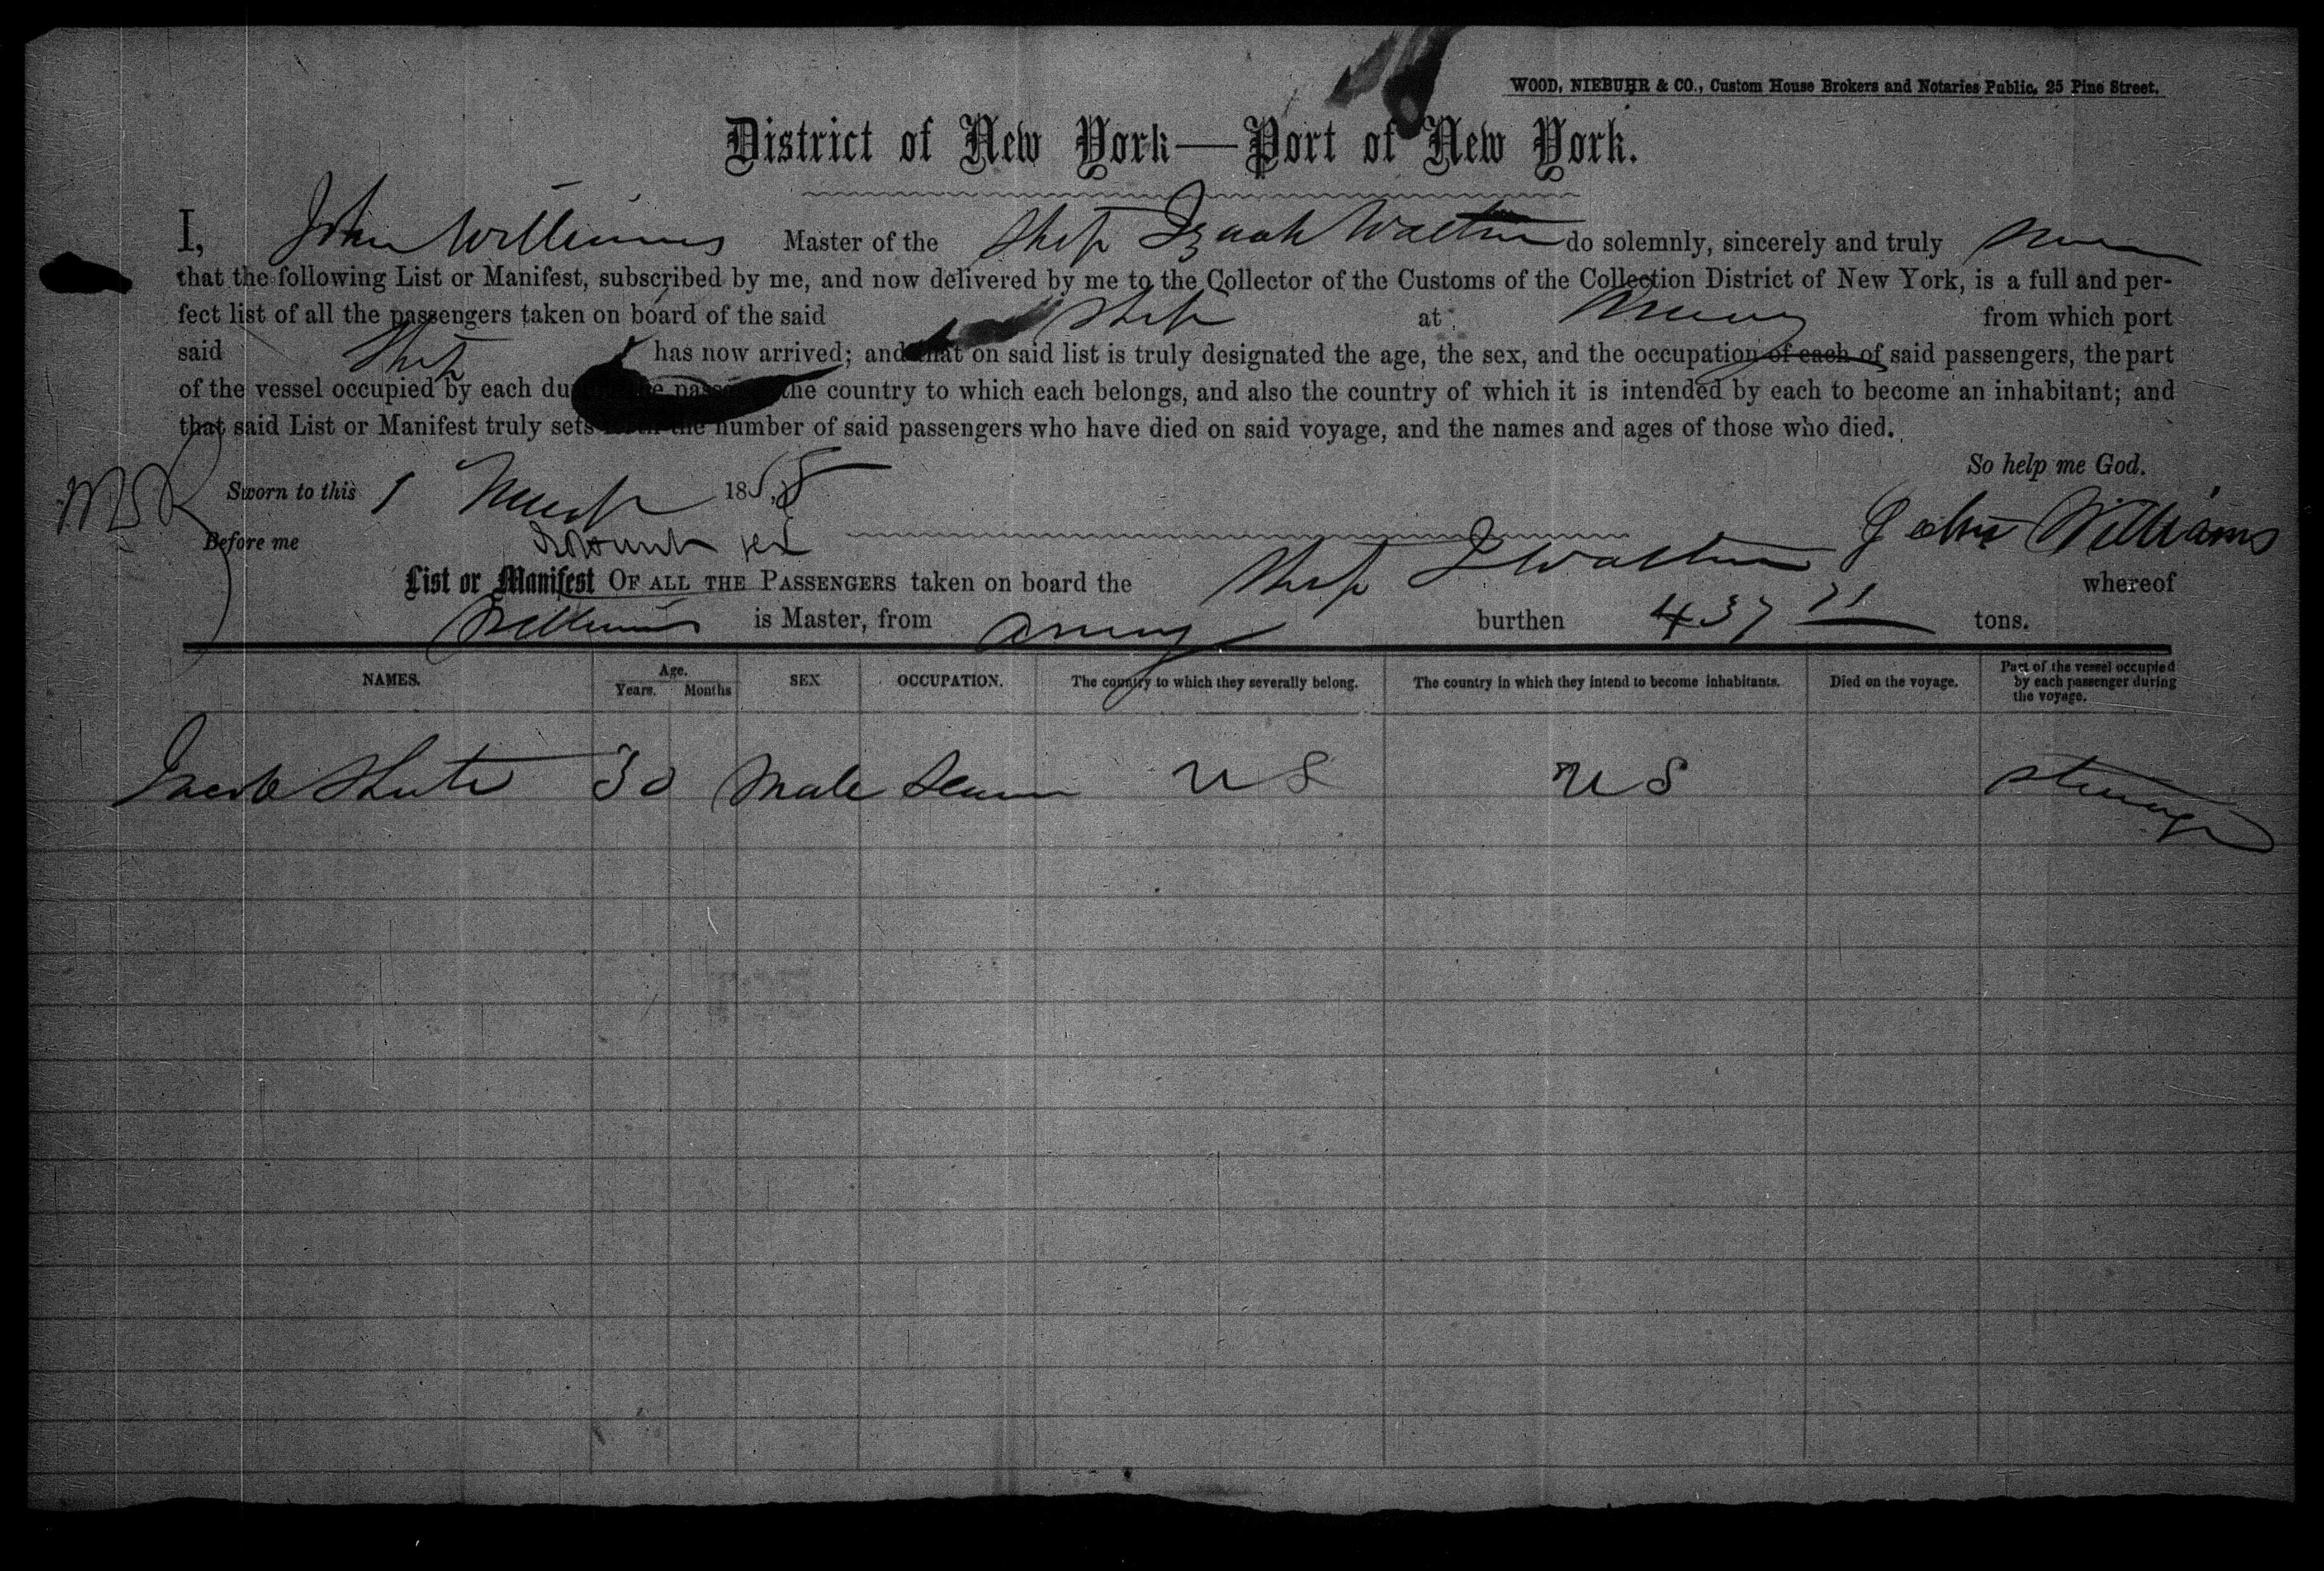 WOOD, NIEBUHR & CO., Custom House Brokers and Notaries Public, 25 Pine Street.
District of New York—Port of New York.
I, John Williams Master of the Ship Izaak Walton do solemnly, sincerely and truly
that the following List or Manifest, subscribed by me, and now delivered by me to the Collector of the Customs of the Collection District of New York, is a full and per-
fect list of all the passengers taken on board of the said Ship at from which port
said Ship has now arrived; and that on said list is truly designated the age, the sex, and the occupation of each of said passengers, the part
of the vessel occupied by each during the passage the country to which each belongs, and also the country of which it is intended by each to become an inhabitant; and
that said List or Manifest truly sets forth the number of said passengers who have died on said voyage, and the names and ages of those who died.
So help me God.
Sworn to this 1 March 1858
John Williams
Before me
List or Manifest OF ALL THE PASSENGERS taken on board the Ship I Walton whereof
Williams is Master, from burthen 437 71 tons.
NAMES. Age. Years. Months SEX OCCUPATION. The country to which they severally belong. The country in which they intend to become inhabitants. Died on the voyage. Part of the vessel occupied by each passenger during the voyage.
Jacob Shute 30 Male Seaman U S U S Steerage